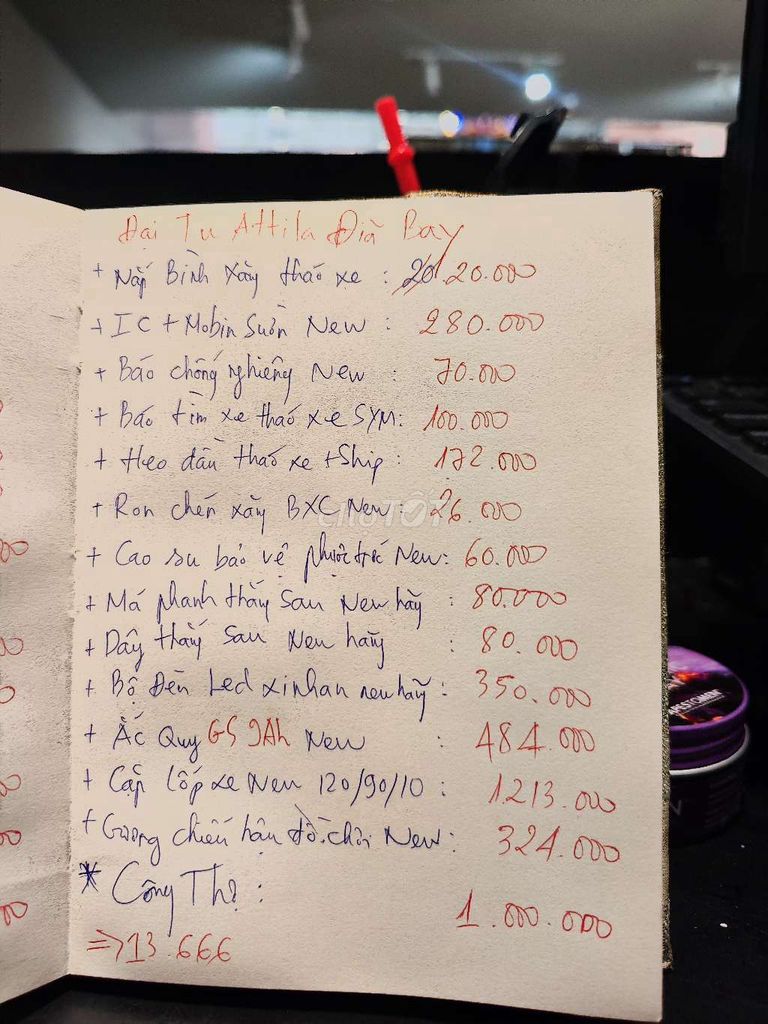 Đai Tu Attila Điã Bay
+ Nắp Bình xăng tháo xe : 20.000
+ IC + Mobin Sườn New : 280.000
+ Báo chống nghiêng New : 70.000
+ Báo tìm xe tháo xe SYM: 100.000
+ Heo dầu tháo xe + Ship : 172.000
+ Ron chén xăng BXC New : 26.000
+ Cao su bảo vệ phuộc trc New: 60.000
+ Má phanh thắng Sau New hãng : 80.000
+ Dây thắng sau New hãng : 80.000
+ Bộ Đèn Led xinhan new hãng : 350.000
+ Ắc Quy GS 9Ah New : 484.000
+ Cặp lốp xe New 120/90/10 : 1.213.000
+ Gương chiếu hậu đồ chơi New : 324.000
* Công Thợ : 1.000.000
=> 13.666
choTỐT